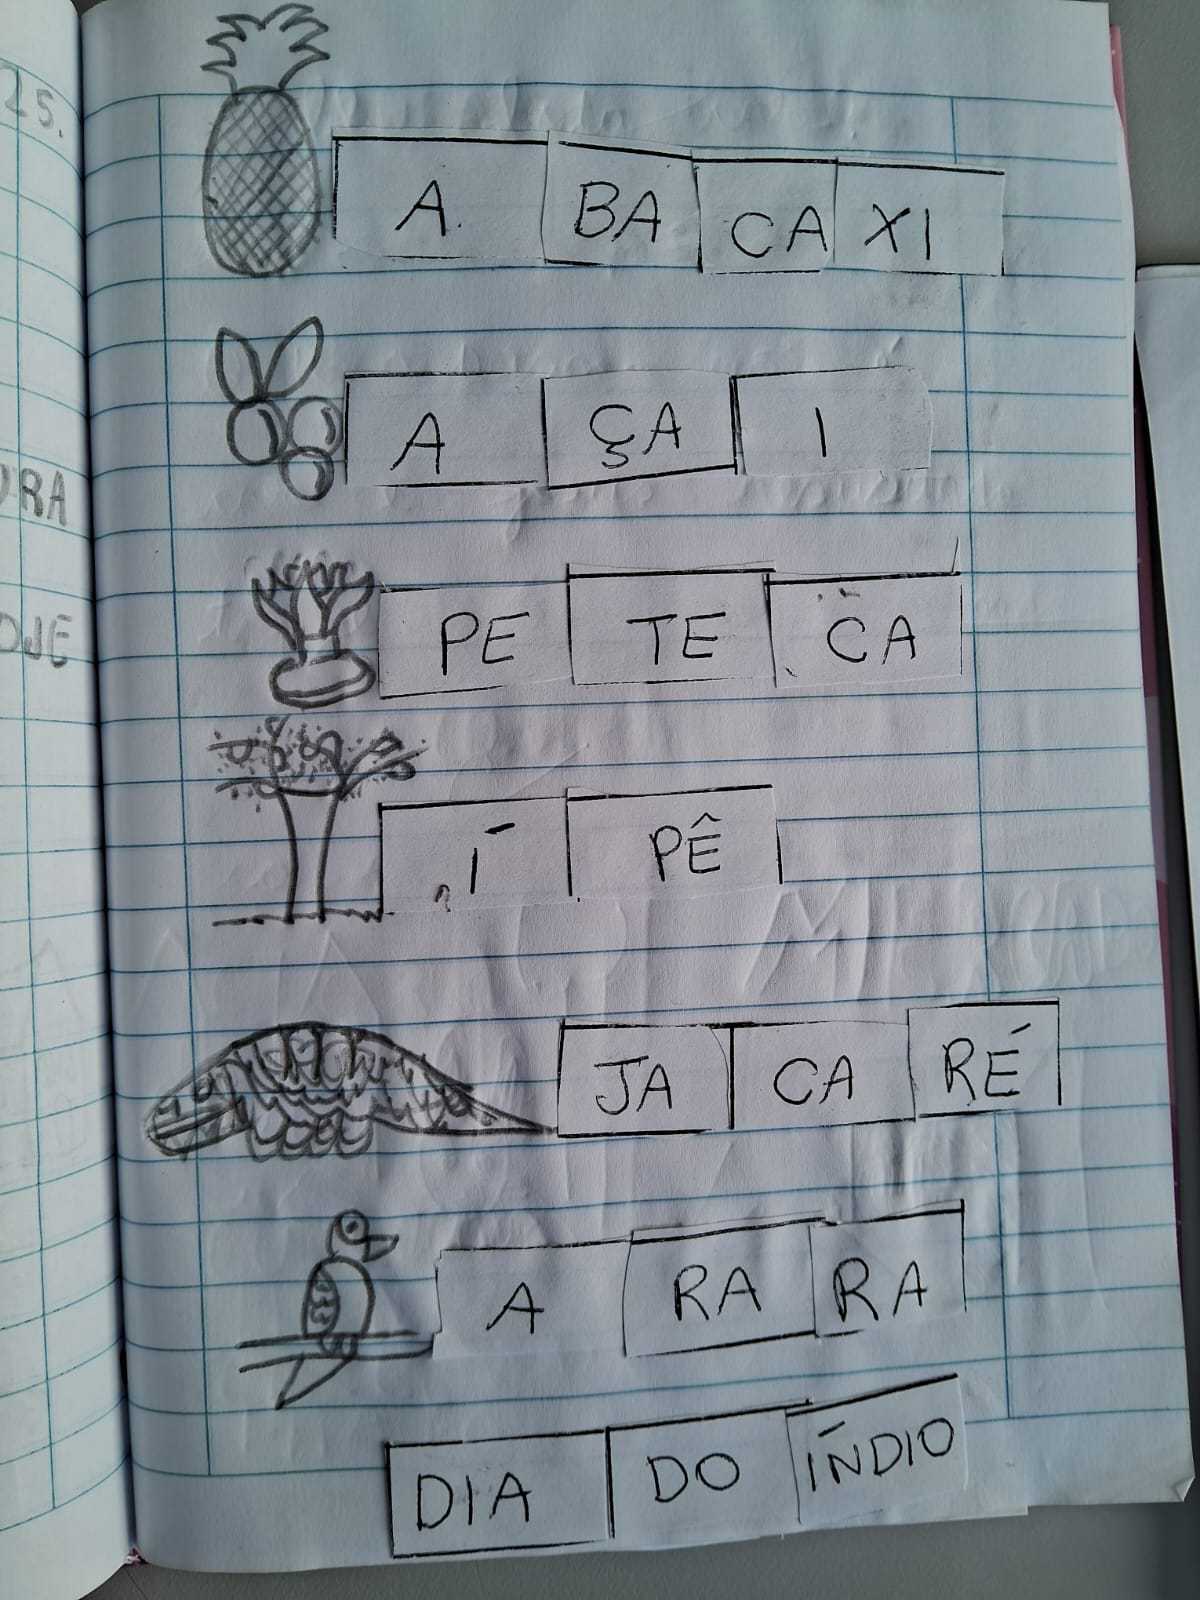 25.
A BA CA XI
A ÇA I
URA
PE TE CA
OJE
Í PÊ
JA CA RÉ
A RA RA
DIA DO ÍNDIO